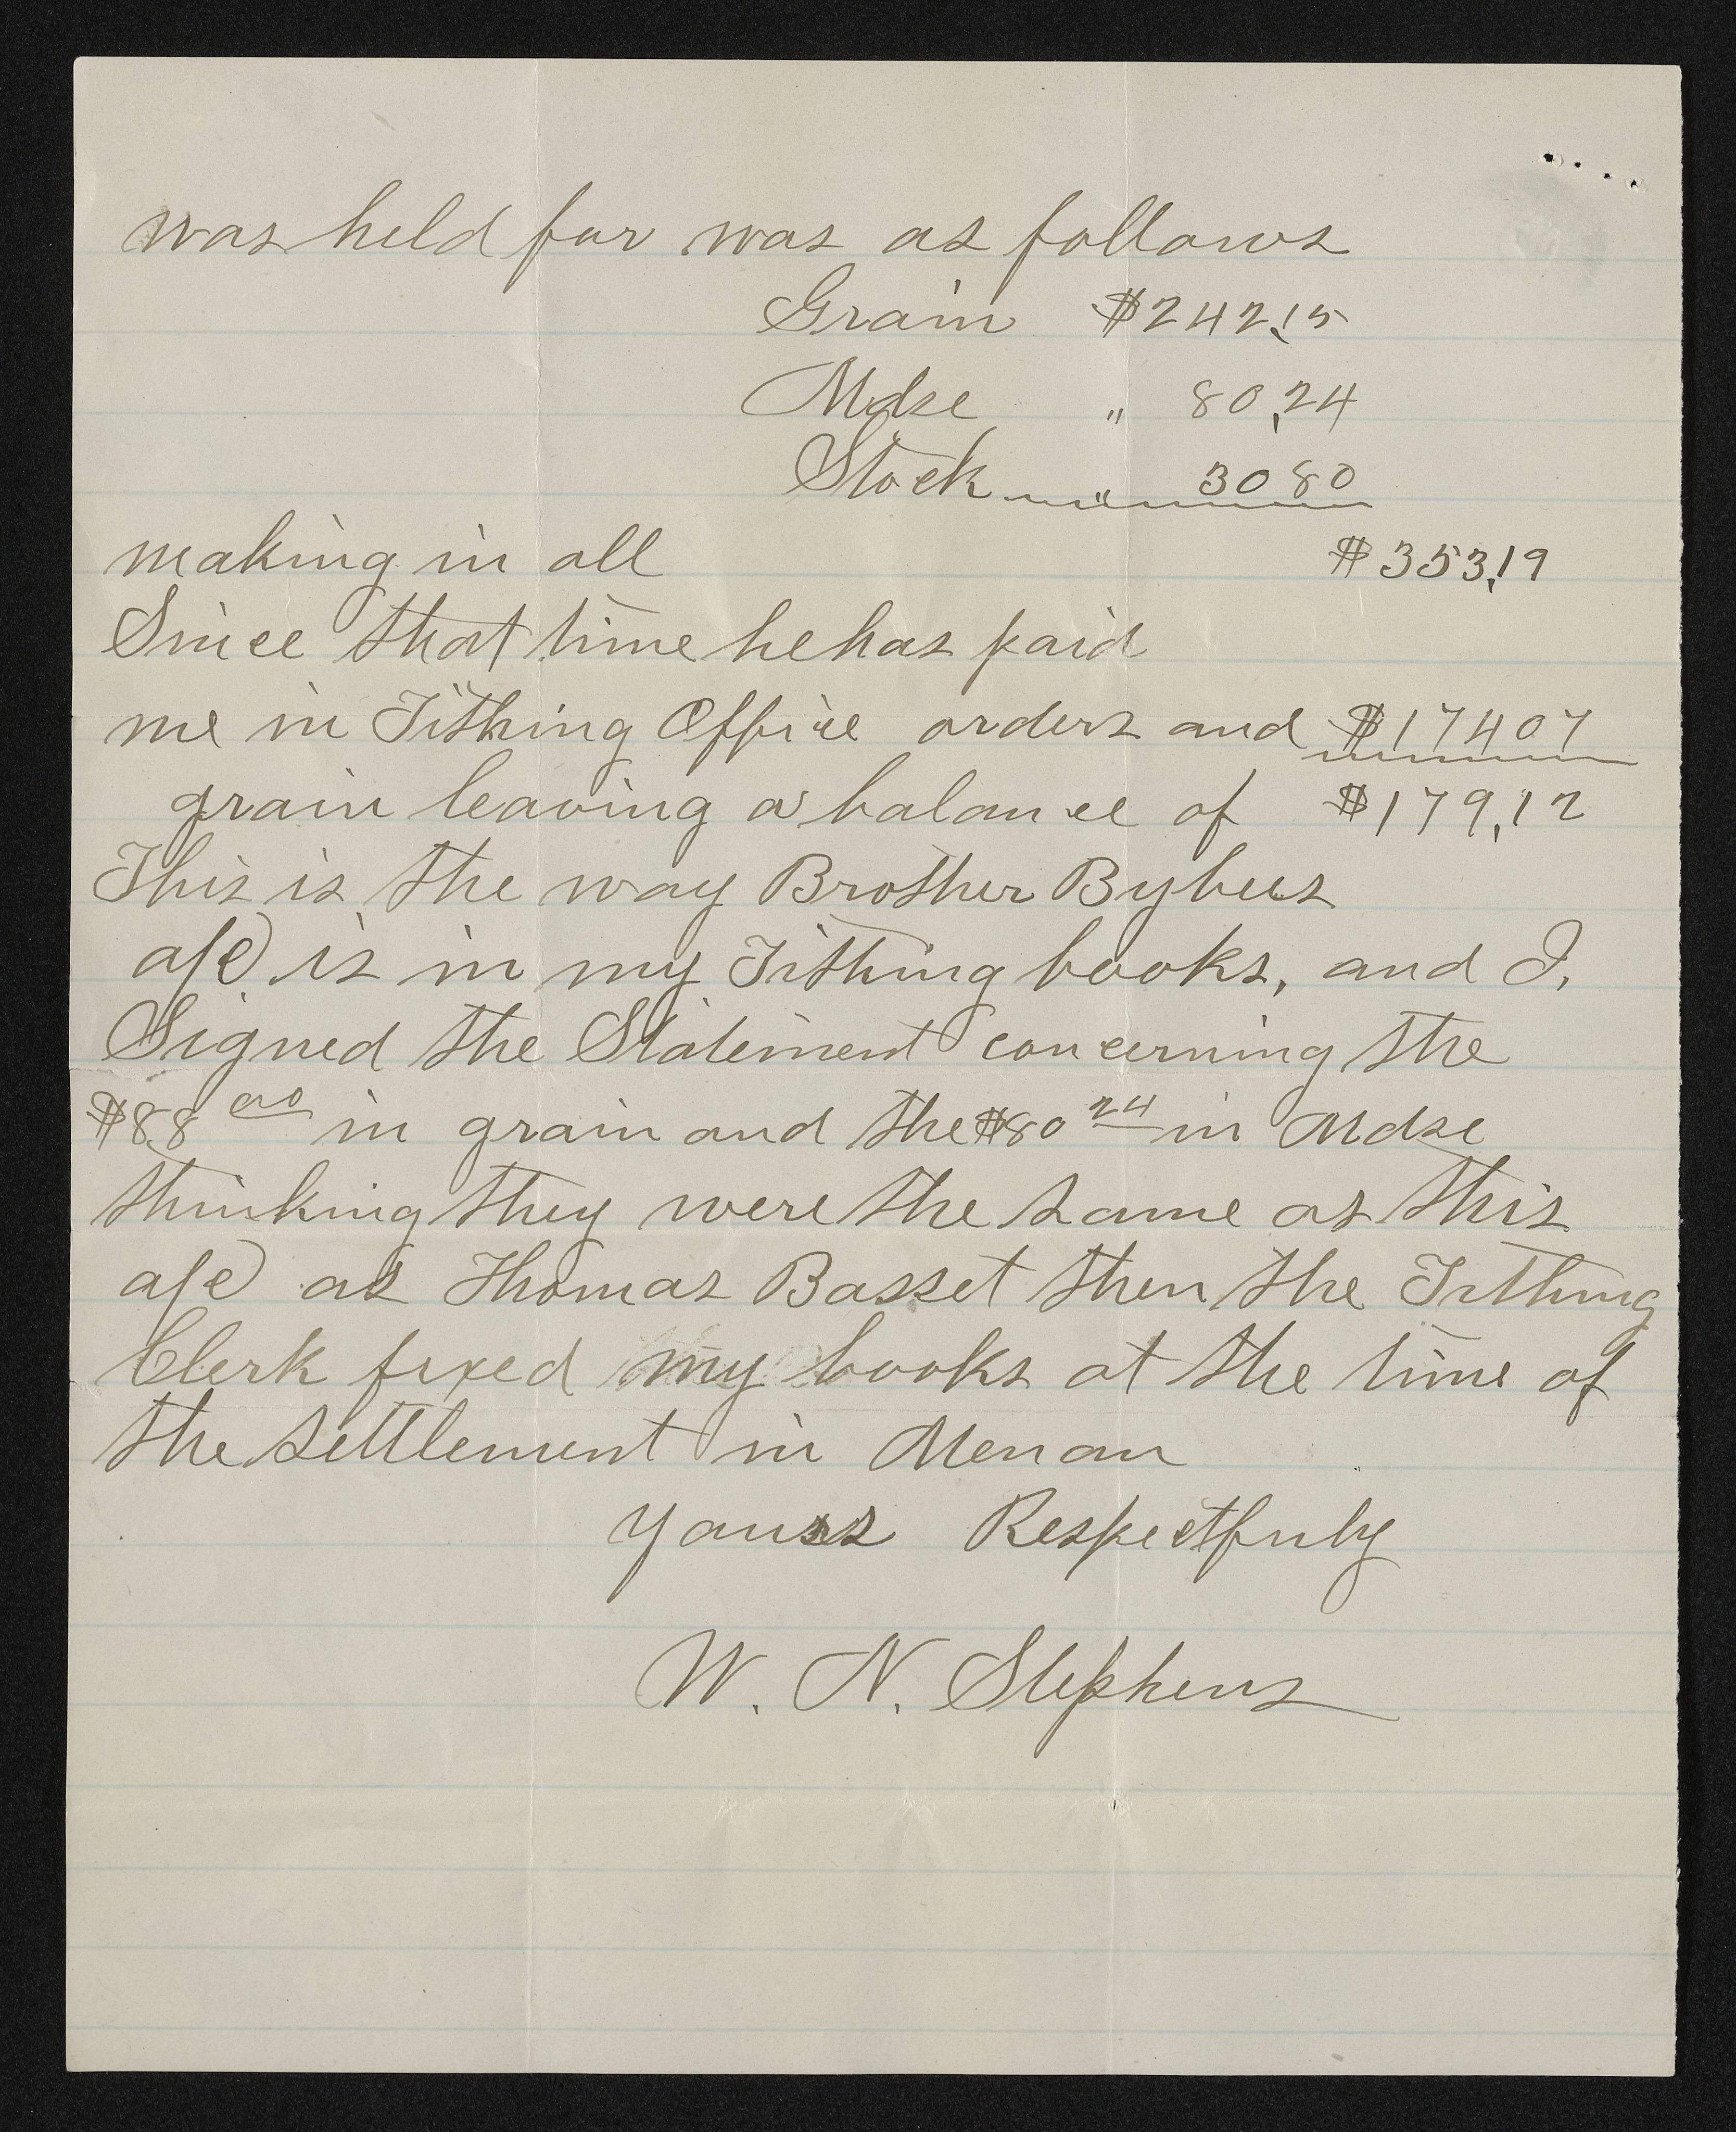 was held for was as follows
Grain $242,15
Mdse " 80,24
Stock " 30 80
making in all $353,19
Since that time he has paid
me in Tithing Office orders and $174 07
grain leaving a balance of $179,12
This is the way Brother Bybees
a/c is in my Tithing books, and I,
Signed the Statement concerning the
$88 00 in grain and the $80 24 in Mdse
thinking they were the same as this
a/c as Thomas Basset then the Tithing
Clerk fixed my books at the time of
the settlement in Menan
yours Respectfuly
W. N. Stephens